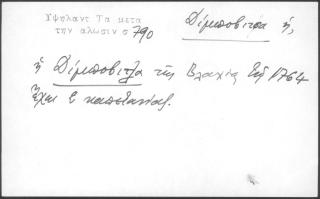 Υψηλαντ Τα μετα
την αλωσιν σ 790
Διμποβιτσα ή,
ή Διμποβιτζα της Βλαχίας τῷ 1764
ἔχει 5 καπετανίας.